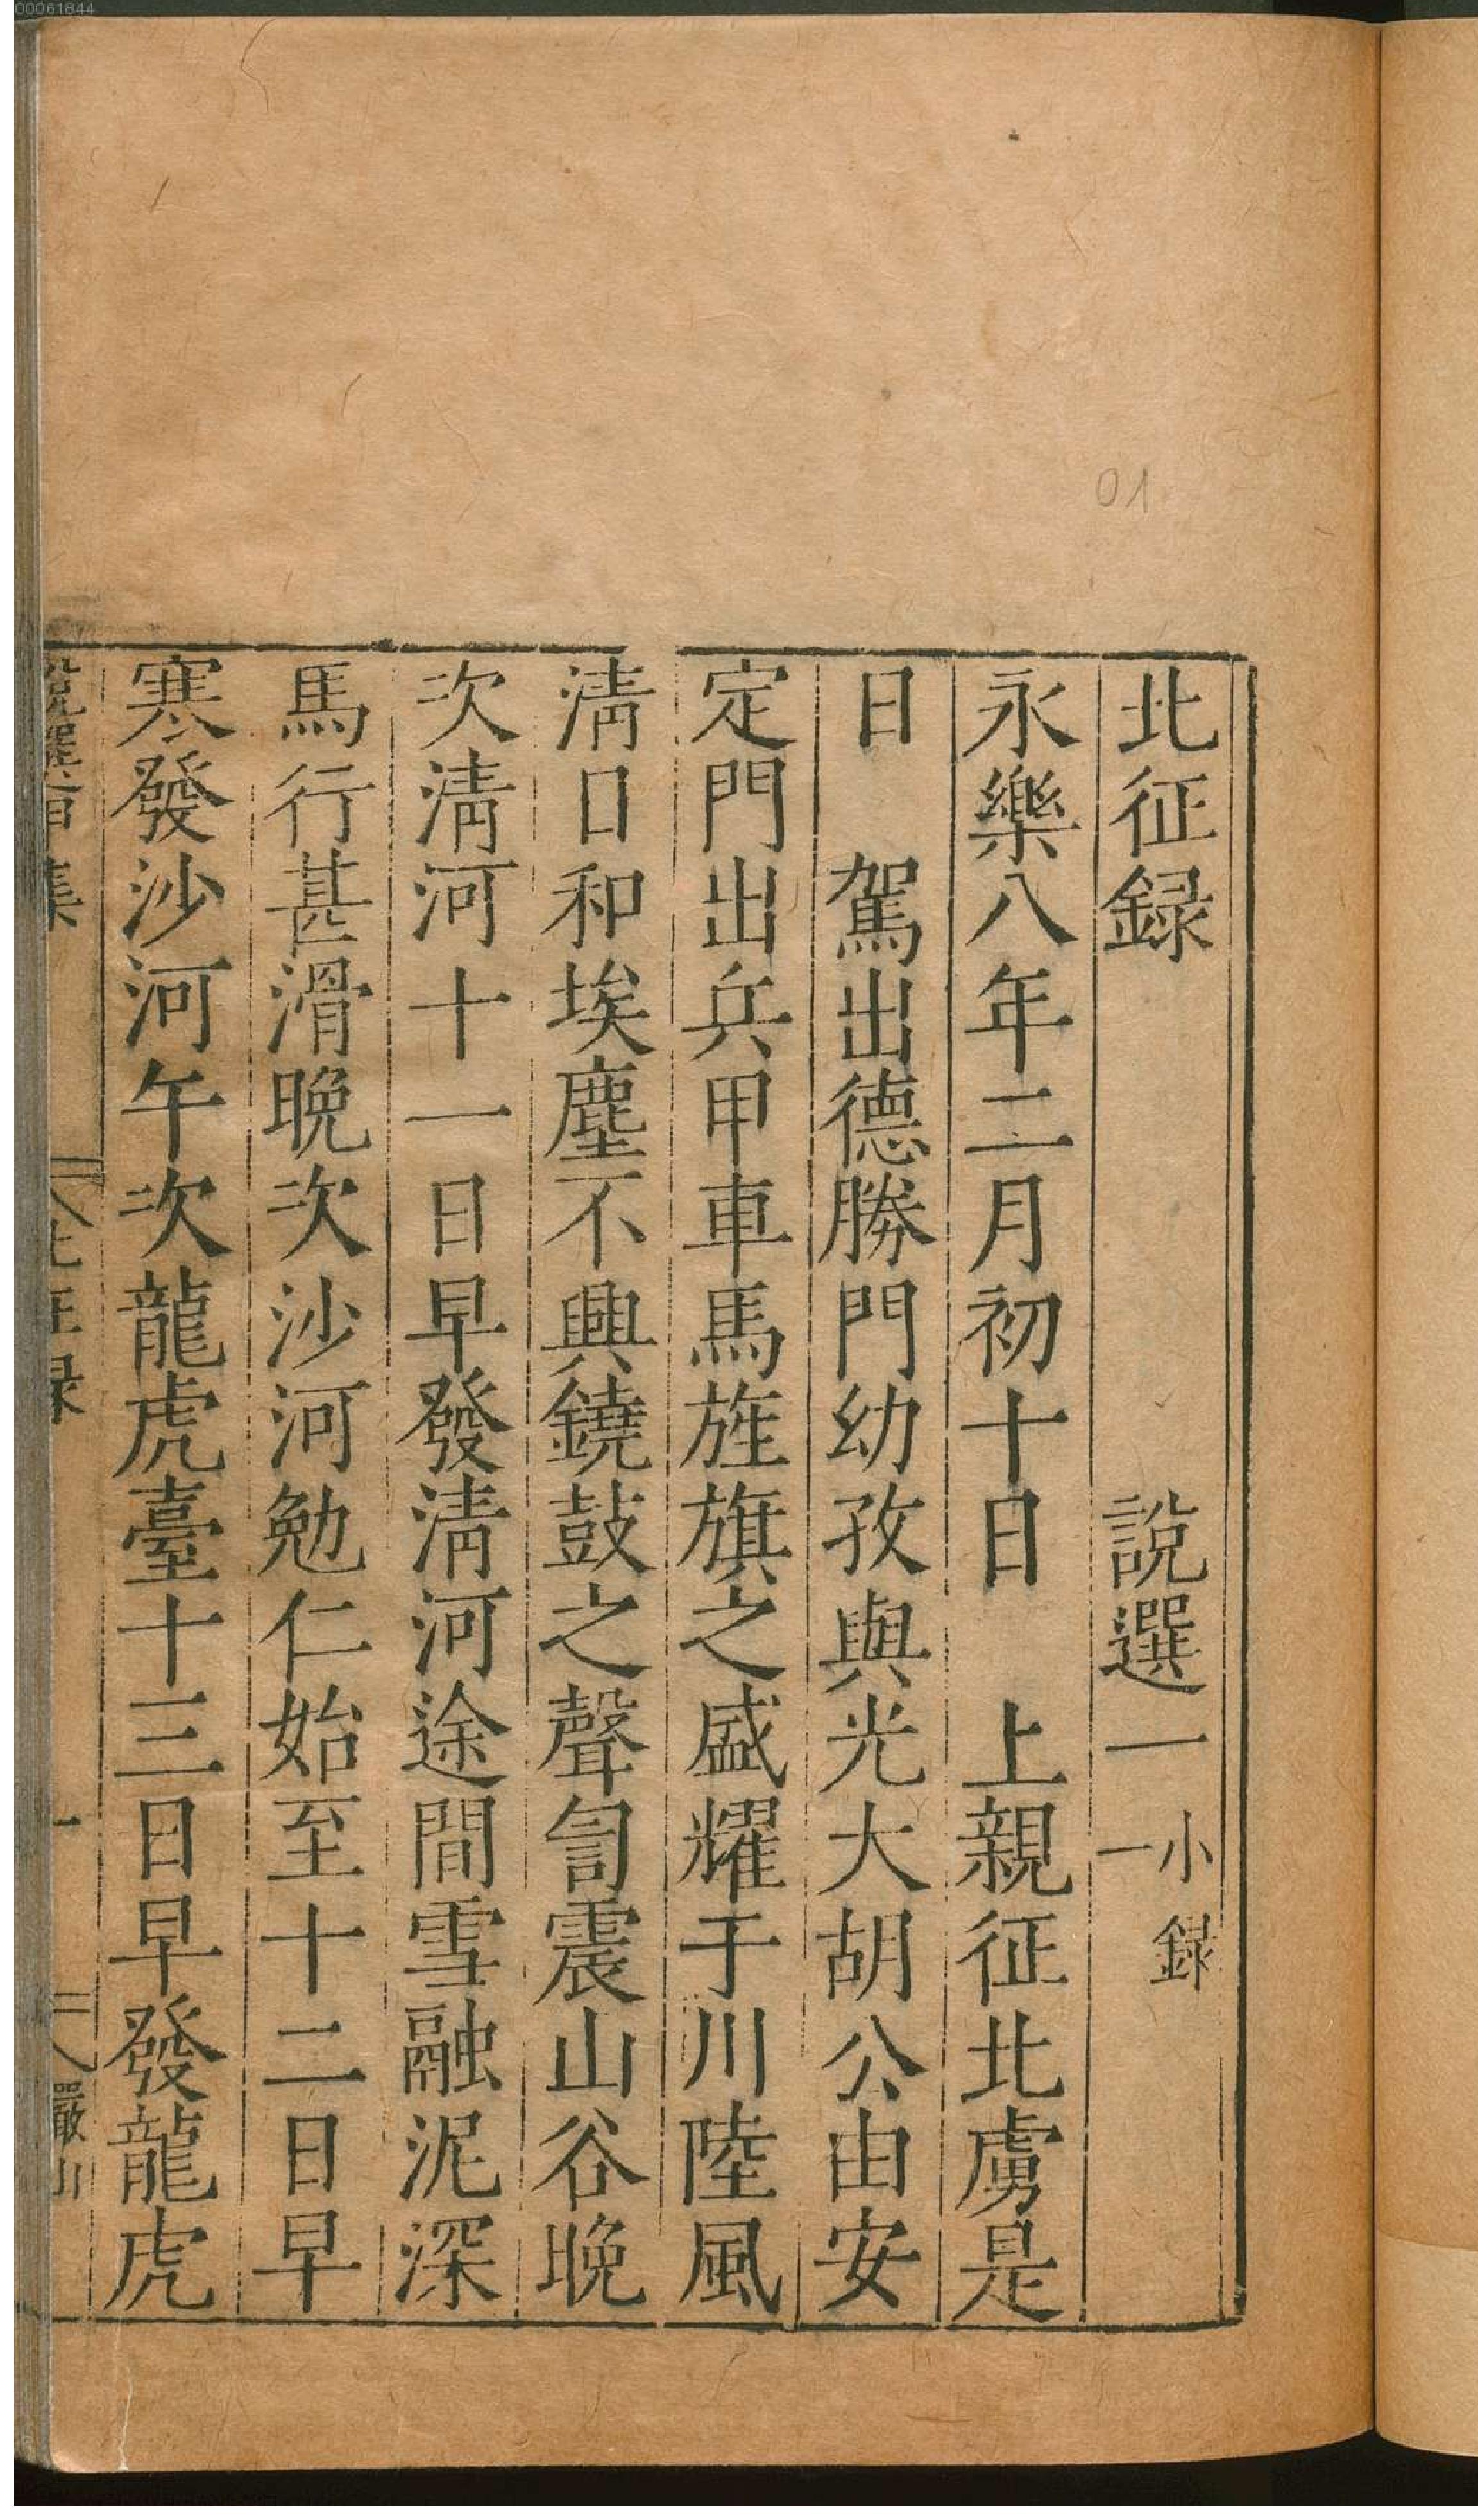 00061844
01
北征録 說選一 小録一
永樂八年二月初十日 上親征北虜是
日 駕出德勝門幼孜與光大胡公由安
定門出兵甲車馬旌旗之盛耀于川陸風
清日和埃塵不興鐃鼓之聲訇震山谷晚
次清河十一日早發清河途間雪融泥深
馬行甚滑晚次沙河勉仁始至十二日早
寒發沙河午次龍虎臺十三日早發龍虎
集 北征録 一 巖山